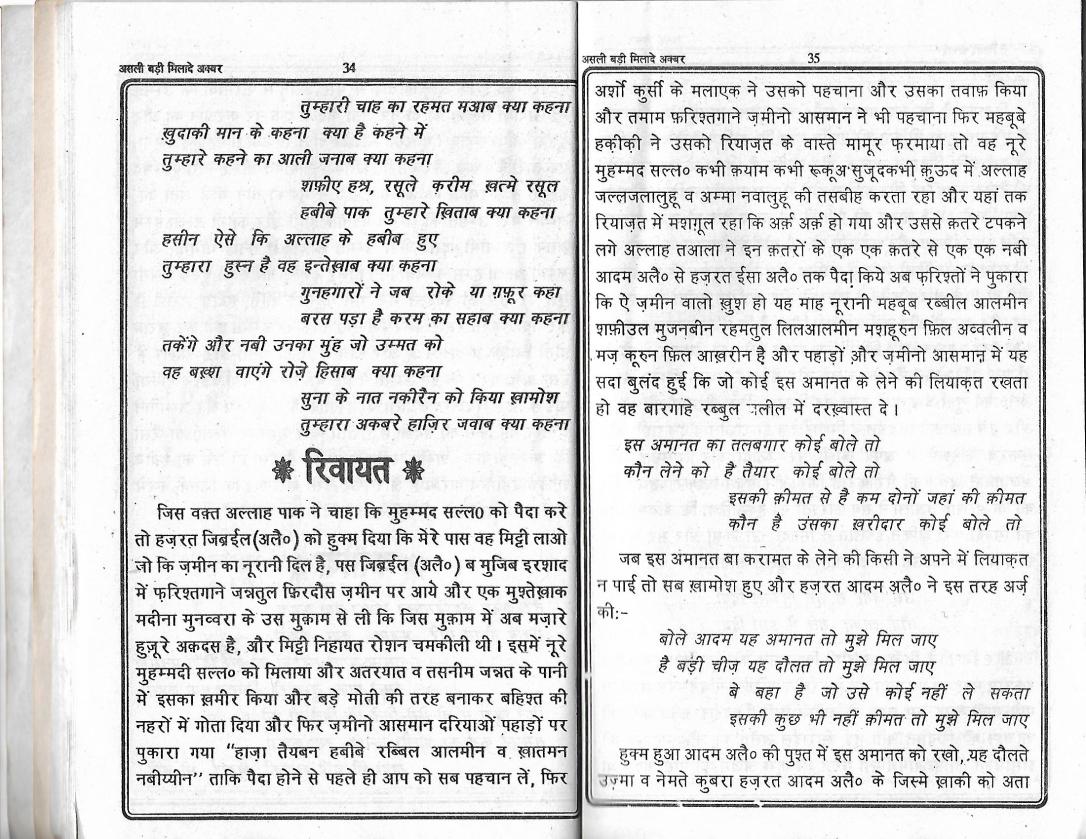 असली बड़ी मिलादे अक्बर 34
तुम्हारी चाह का रहमत मआब क्या कहना
ख़ुदाकी मान के कहना क्या है कहने में
तुम्हारे कहने का आली जनाब क्या कहना
शफ़ीए हश्र, रसूले क़रीम ख़त्मे रसूल
हबीबे पाक तुम्हारे ख़िताब क्या कहना
हसीन ऐसे कि अल्लाह के हबीब हुए
तुम्हारा हुस्न है वह इन्तेख़ाब क्या कहना
गुनहगारों ने जब रोके या ग़फ़ूर कहा
बरस पड़ा है करम का सहाब क्या कहना
तकेंगे और नबी उनका मुंह जो उम्मत को
वह बख़्शा वाएंगे रोज़े हिसाब क्या कहना
सुना के नात नकीरैन को किया ख़ामोश
तुम्हारा अकबरे हाज़िर जवाब क्या कहना
❋ रिवायत ❋
जिस वक़्त अल्लाह पाक ने चाहा कि मुहम्मद सल्ल0 को पैदा करे
तो हज़रत जिब्रईल(अलै०) को हुक्म दिया कि मेरे पास वह मिट्टी लाओ
जो कि ज़मीन का नूरानी दिल है, पस जिब्रईल (अलै०) ब मुजिब इरशाद
में फ़रिश्तगाने जन्नतुल फ़िरदौस ज़मीन पर आये और एक मुश्तेख़ाक
मदीना मुनव्वरा के उस मुक़ाम से ली कि जिस मुक़ाम में अब मज़ारे
हुजूरे अक़दस है, और मिट्टी निहायत रोशन चमकीली थी। इसमें नूरे
मुहम्मदी सल्ल० को मिलाया और अतरयात व तसनीम जन्नत के पानी
में इसका ख़मीर किया और बड़े मोती की तरह बनाकर बहिश्त की
नहरों में गोता दिया और फिर ज़मीनो आसमान दरियाओं पहाड़ों पर
पुकारा गया “हाज़ा तैयबन हबीबे रब्बिल आलमीन व ख़ातमन
नबीय्यीन” ताकि पैदा होने से पहले ही आप को सब पहचान लें, फिर
असली बड़ी मिलादे अक्बर 35
अर्शो कुर्सी के मलाएक ने उसको पहचाना और उसका तवाफ़ किया
और तमाम फ़रिश्तगाने ज़मीनो आसमान ने भी पहचाना फिर महबूबे
हक़ीक़ी ने उसको रियाज़त के वास्ते मामूर फ़रमाया तो वह नूरे
मुहम्मद सल्ल० कभी क़याम कभी रूकूअ सुजूदकभी क़ुऊद में अल्लाह
जल्लजालालुहू व अम्मा नवालुहू की तसबीह करता रहा और यहां तक
रियाज़त में मशग़ूल रहा कि अर्क़ अर्क़ हो गया और उससे क़तरे टपकने
लगे अल्लाह तआला ने इन क़तरों के एक एक क़तरे से एक एक नबी
आदम अलै० से हज़रत ईसा अलै० तक पैदा किये अब फ़रिश्तों ने पुकारा
कि ऐ ज़मीन वालो खुश हो यह माह नूरानी महबूब रब्बील आलमीन
शफ़ीउल मुजनबीन रहमतुल लिलआलमीन मशहूरुन फ़िल अव्वलीन व
मज़ कूरुन फ़िल आख़रीन है और पहाड़ों और ज़मीनो आसमान में यह
सदा बुलंद हुई कि जो कोई इस अमानत के लेने की लियाक़त रखता
हो वह बारगाहे रब्बुल में दरख़्वास्त दे।
इस अमानत का तलबगार कोई बोले तो
कौन लेने को है तैयार कोई बोले तो
इसकी क़ीमत से है कम दोनों जहां की क़ीमत
कौन है उसका ख़रीदार कोई बोले तो
जब इस अंमानत बा करामत के लेने की किसी ने अपने में लियाक़त
न पाई तो सब ख़ामोश हुए और हज़रत आदम अलै० ने इस तरह अर्ज़
की:-
बोले आदम यह अमानत तो मुझे मिल जाए
है बड़ी चीज़ यह दौलत तो मुझे मिल जाए
बे बहा है जो उसे कोई नहीं ले सकता
इसकी कुछ भी नहीं क़ीमत तो मुझे मिल जाए
हुकम हुआ आदम अलै० की पुश्त में इस अमानत को रखो, यह दौलते
उज़्मा व नेमते कुंबरा हज़रत आदम अलै० के जिस्मे ख़ाकी को अता